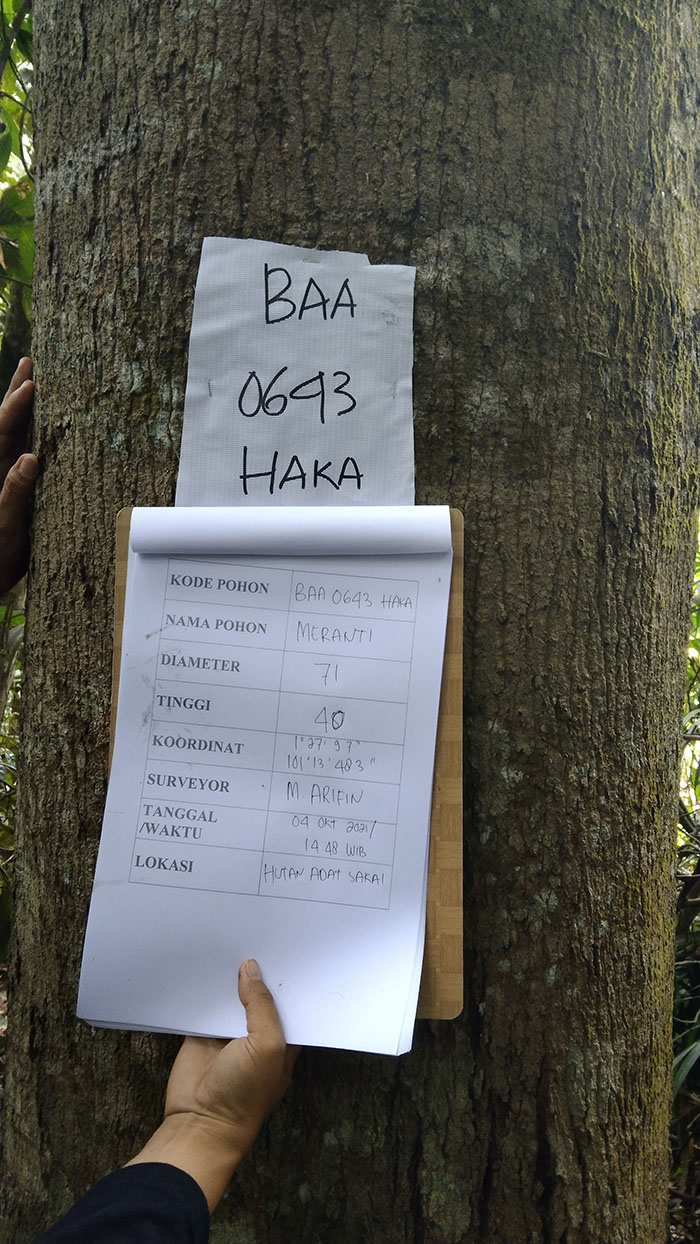 BAA
0643
HAKA
KODE POHON BAA 0643 HAKA
NAMA POHON MERANTI
DIAMETER 71
TINGGI 40
KOORDINAT 1°27'97"
101°13'483"
SURVEYOR M. ARIFIN
TANGGAL 04 OKT 2021/
/WAKTU 14 48 WIB
LOKASI HUTAN ADAT SAKAI